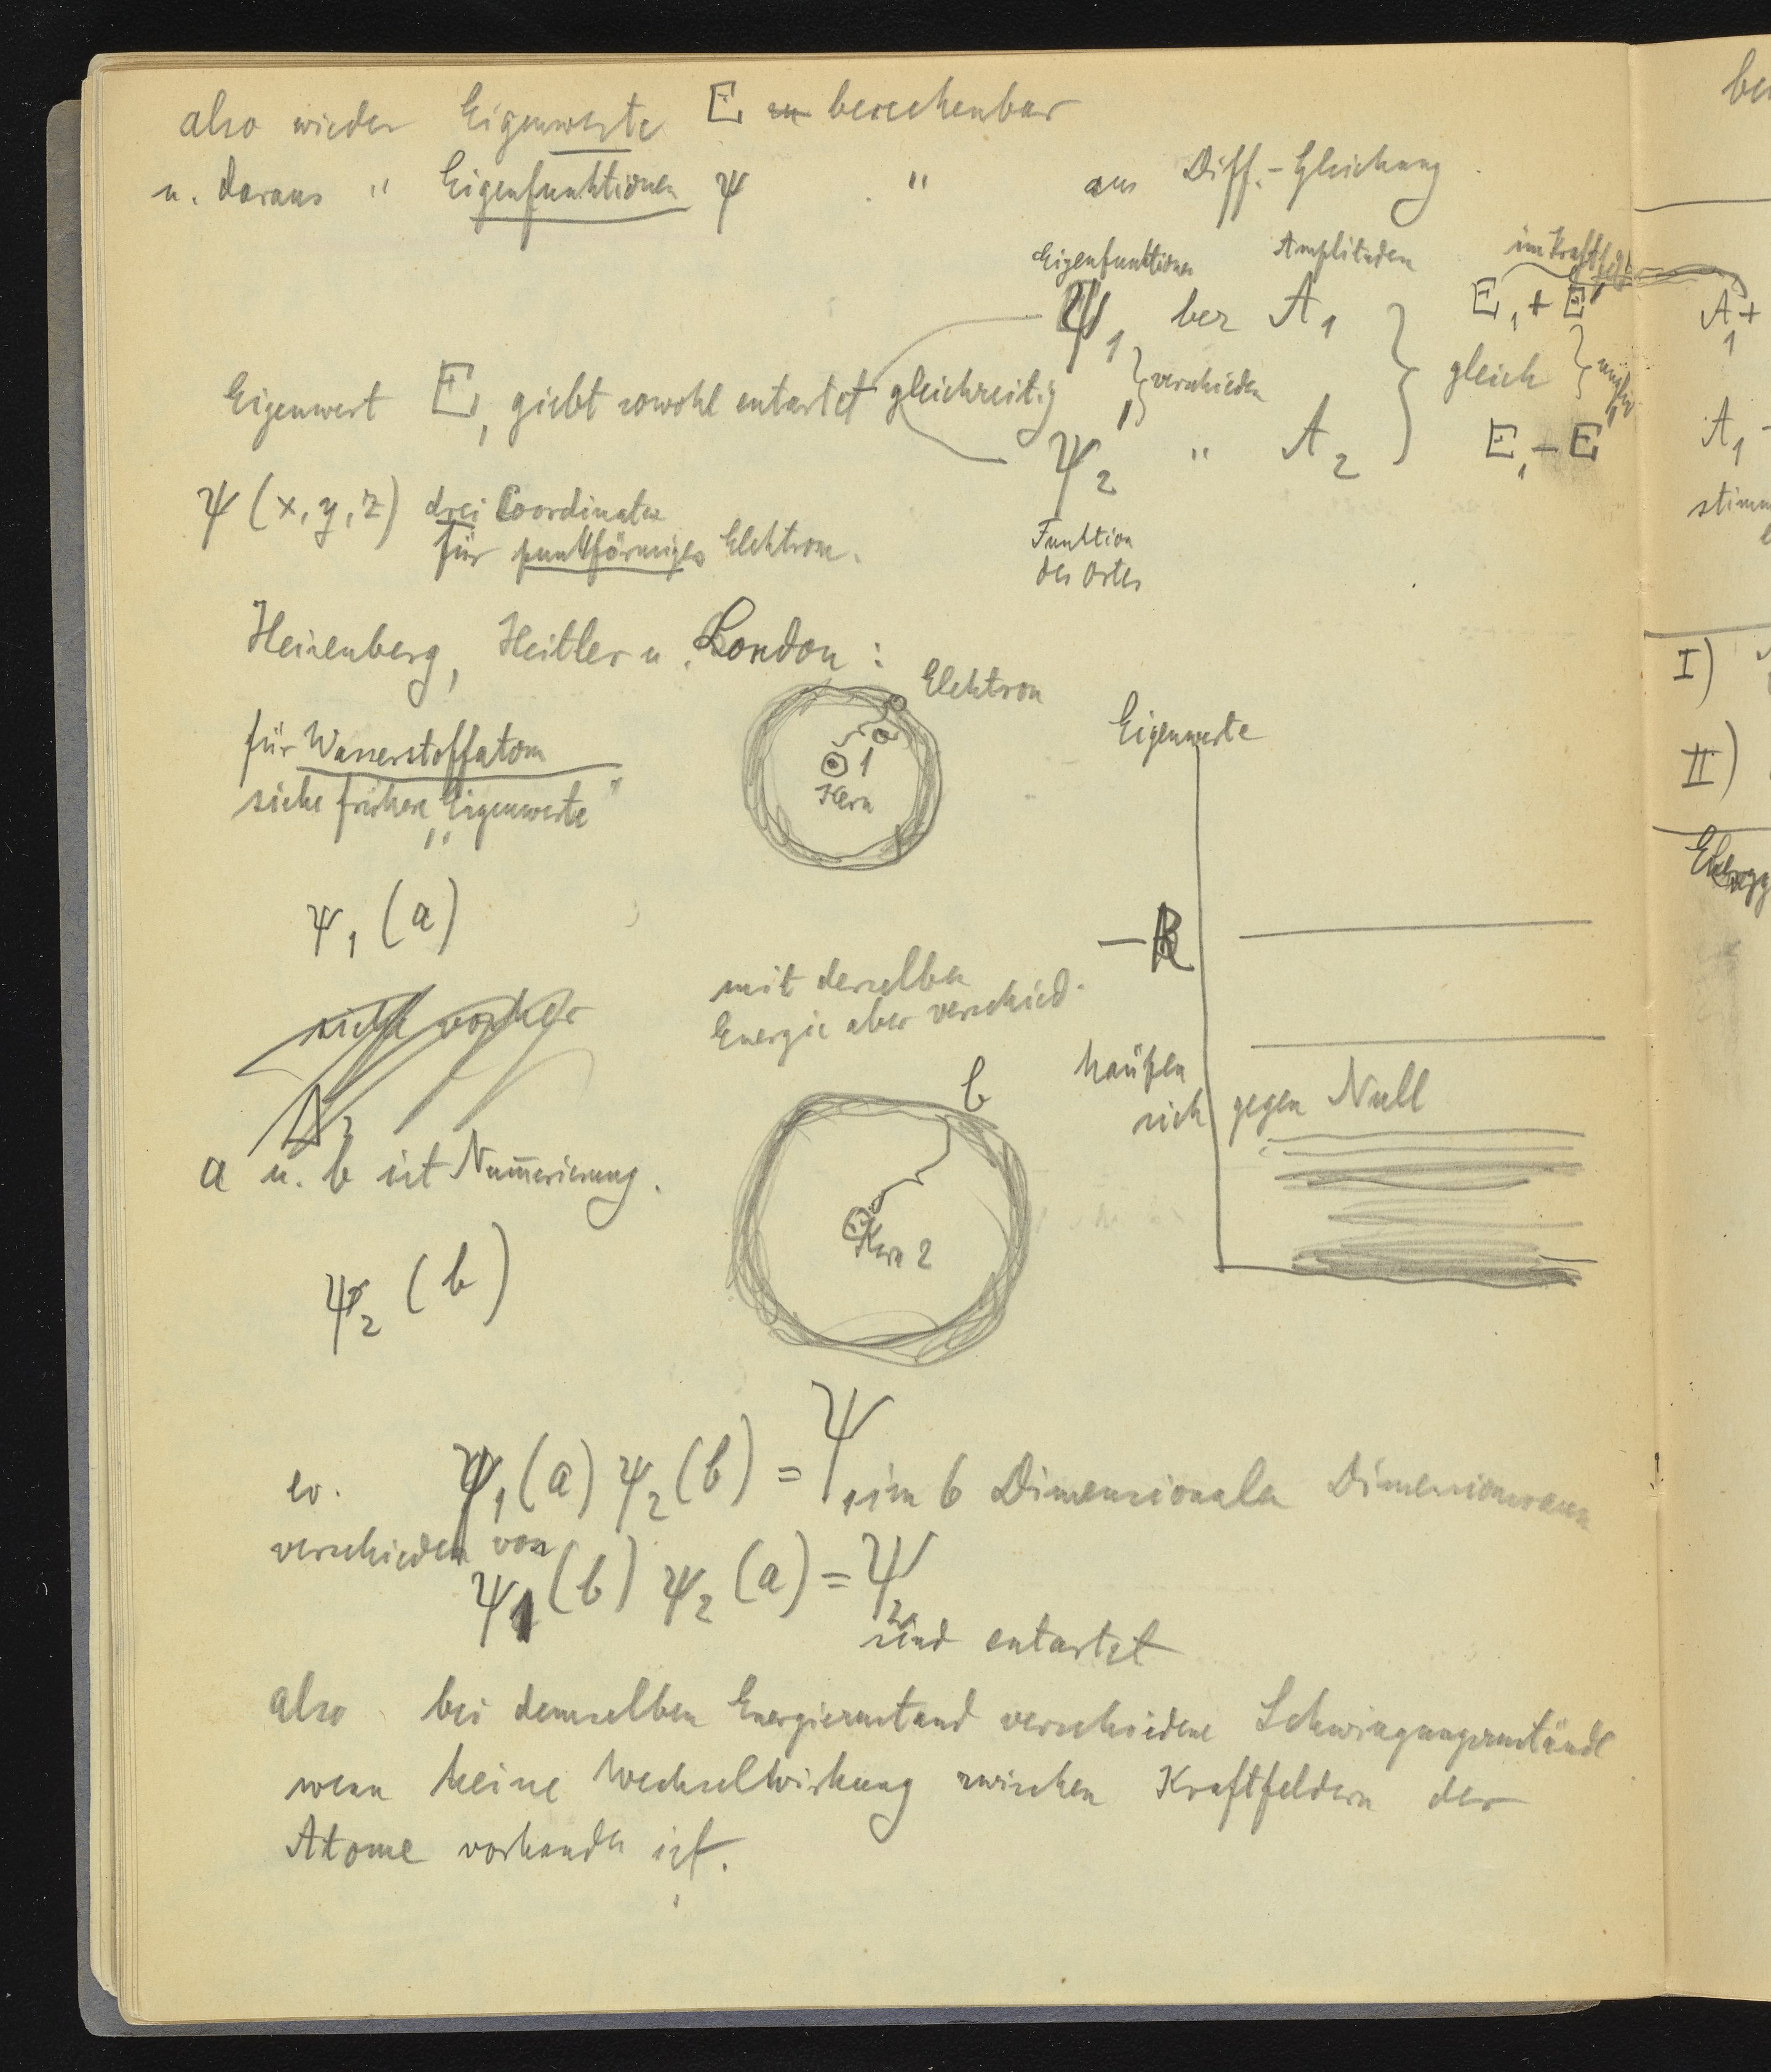 also wieder Eigenwerte E berechenbar
u. daraus " Eigenfunktionen ψ " aus Diff.-Gleichung
Eigenfunktionen Amplituden im Kraftfeld
ψ₁ bez A₁ E₁ + E'
Eigenwert E₁ giebt sowohl entartet gleichzeitig } verschieden } gleich }
ψ₂ " A₂ E₁ - E'
Funktion
des Ortes
ψ (x, y, z) drei Coordinaten
für punktförmiges Elektron.
Heisenberg, Heitler u. London :
Elektron
für Wasserstoffatom
siehe frühere „Eigenwerte"
1
Kern
Eigenwerte
ψ₁ (a)
- R
siehe vorher
mit derselben
Energie aber verschied.
häufen
sich gegen Null
b
a u. b ist Num̅erierung.
Kern 2
ψ₂ (b)
ev. ψ₁(a) ψ₂(b) = Ψ₁ im 6 Dimensionalen
verschieden von
ψ₁(b) ψ₂(a) = Ψ₂
sind entartet
also bei demselben Energiezustand verschiedene Schwingungszustände
wenn keine Wechselwirkung zwischen Kraftfeldern der
Atome vorhanden ist.
be
A₁ +
A₁ -
stimm
I)
II)